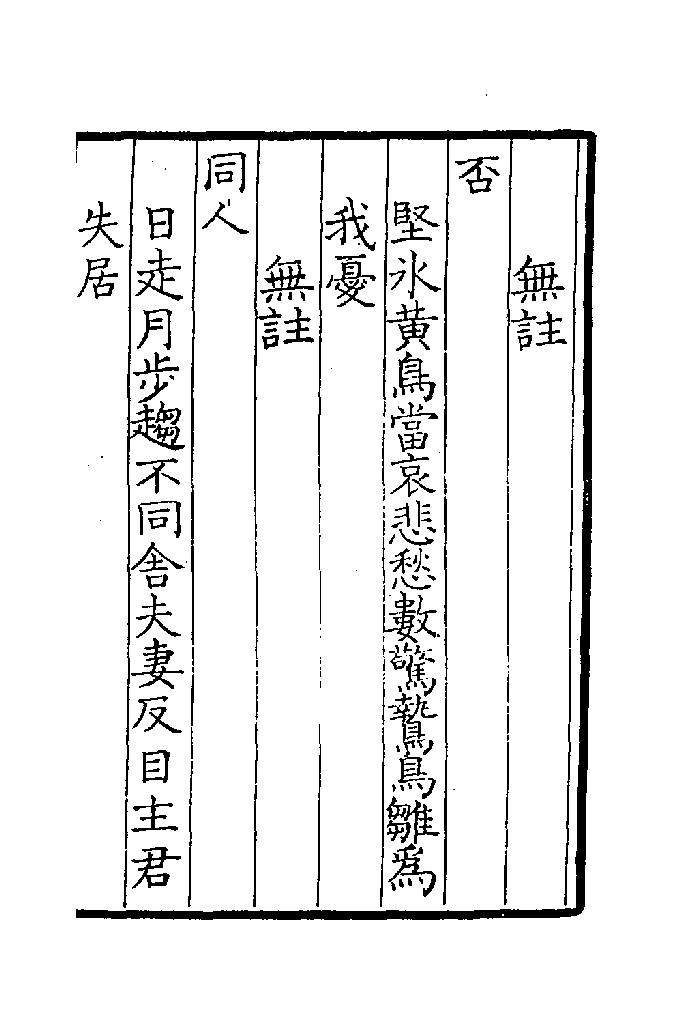 無註
否
堅冰黃鳥當哀悲愁數驚鷙鳥雛為
我憂
無註
同人
日走月步趨不同舍夫妻反目主君
失居